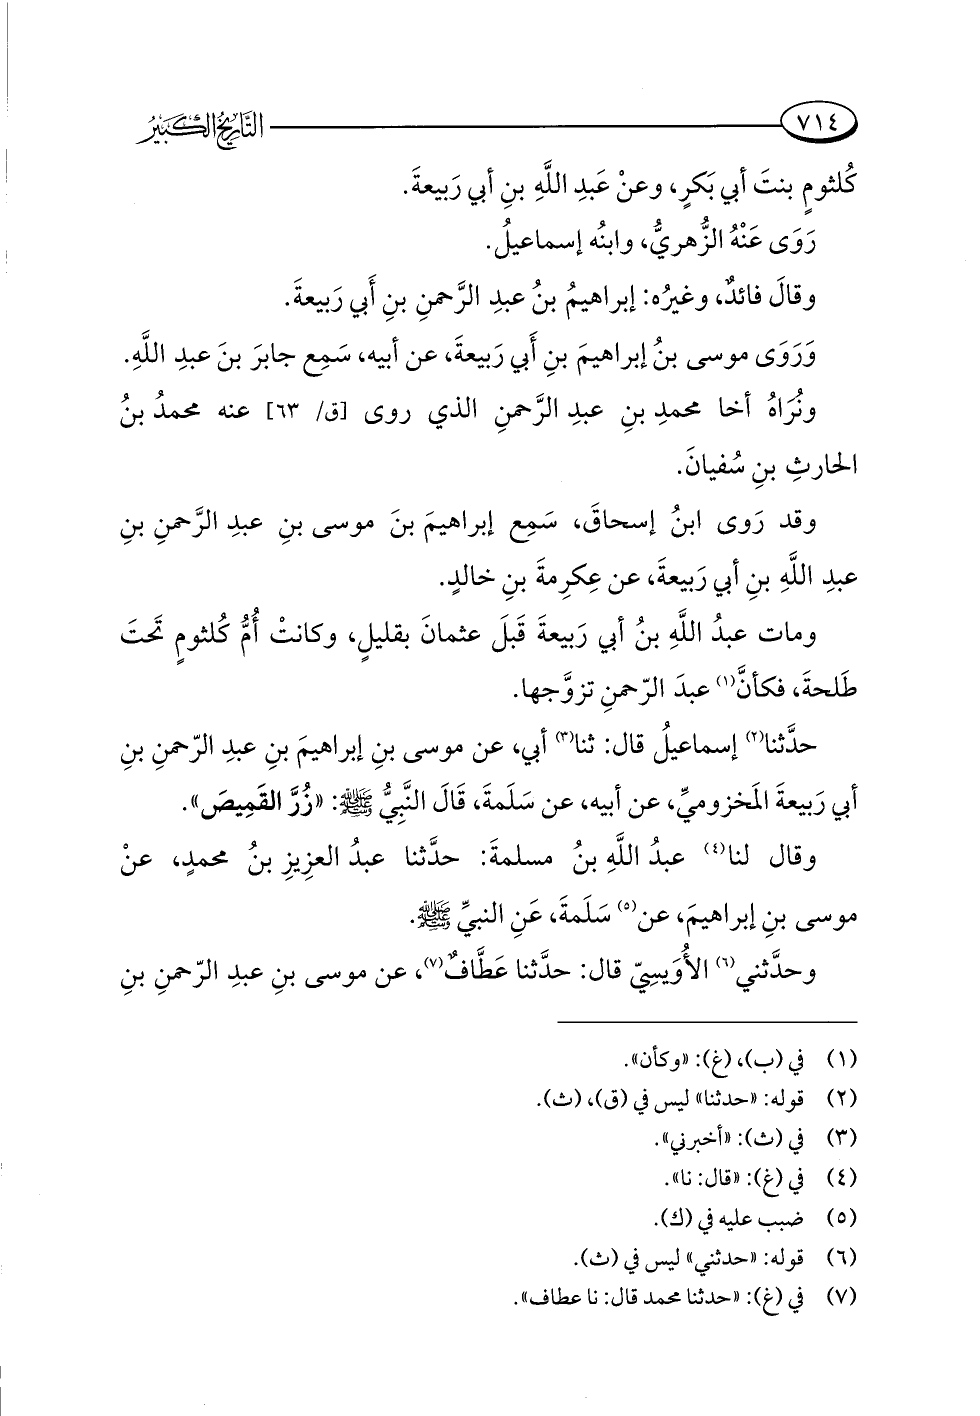 ٧١٤ التاريخ الكبير
كُلثومٍ بنتَ أبي بَكرٍ، وعنْ عَبدِ اللَّهِ بنِ أبي رَبيعةَ.
رَوَى عَنْهُ الزُّهريُّ، وابنُه إسماعيلُ.
وقالَ فائدٌ، وغيرُه: إبراهيمُ بنُ عبدِ الرَّحمنِ بنِ أَبي رَبيعةَ.
وَرَوَى موسى بنُ إبراهيمَ بنِ أَبي رَبيعةَ، عن أبيه، سَمِع جابرَ بنَ عبدِ اللَّهِ.
ونُرَاهُ أخا محمدِ بنِ عبدِ الرَّحمنِ الذي روى [ق/ ٦٣] عنه محمدُ بنُ
الحارثِ بنِ سُفيانَ.
وقد رَوى ابنُ إسحاقَ، سَمِع إبراهيمَ بنَ موسى بنِ عبدِ الرَّحمنِ بنِ
عبدِ اللَّهِ بنِ أبي رَبيعةَ، عن عِكرِمةَ بنِ خالدٍ.
ومات عبدُ اللَّهِ بنُ أبي رَبيعةَ قَبلَ عثمانَ بقليلٍ، وكانتْ أُمُّ كُلثومٍ تَحتَ
طَلحةَ، فكأنَّ(١) عبدَ الرّحمنِ تزوَّجها.
حدَّثنا(٢) إسماعيلُ قال: ثنا(٣) أبي، عن موسى بنِ إبراهيمَ بنِ عبدِ الرّحمنِ بنِ
أبي رَبيعةَ المَخزوميِّ، عن أبيه، عن سَلَمةَ، قَالَ النَّبِيُّ ﷺ: «زُرَّ القَمِيصَ».
وقال لنا(٤) عبدُ اللَّهِ بنُ مسلمةَ: حدَّثنا عبدُ العزيزِ بنُ محمدٍ، عنْ
موسى بنِ إبراهيمَ، عن(٥) سَلَمةَ، عَنِ النبيِّ ﷺ.
وحدَّثني(٦) الأُوَيسِيّ قال: حدَّثنا عَطَّافٌ(٧)، عن موسى بنِ عبدِ الرّحمنِ بنِ
(١) في (ب)، (غ): «وكأن».
(٢) قوله: «حدثنا» ليس في (ق)، (ث).
(٣) في (ث): «أخبرني».
(٤) في (غ): «قال: نا».
(٥) ضبب عليه في (ك).
(٦) قوله: «حدثني» ليس في (ث).
(٧) في (غ): «حدثنا محمد قال: نا عطاف».